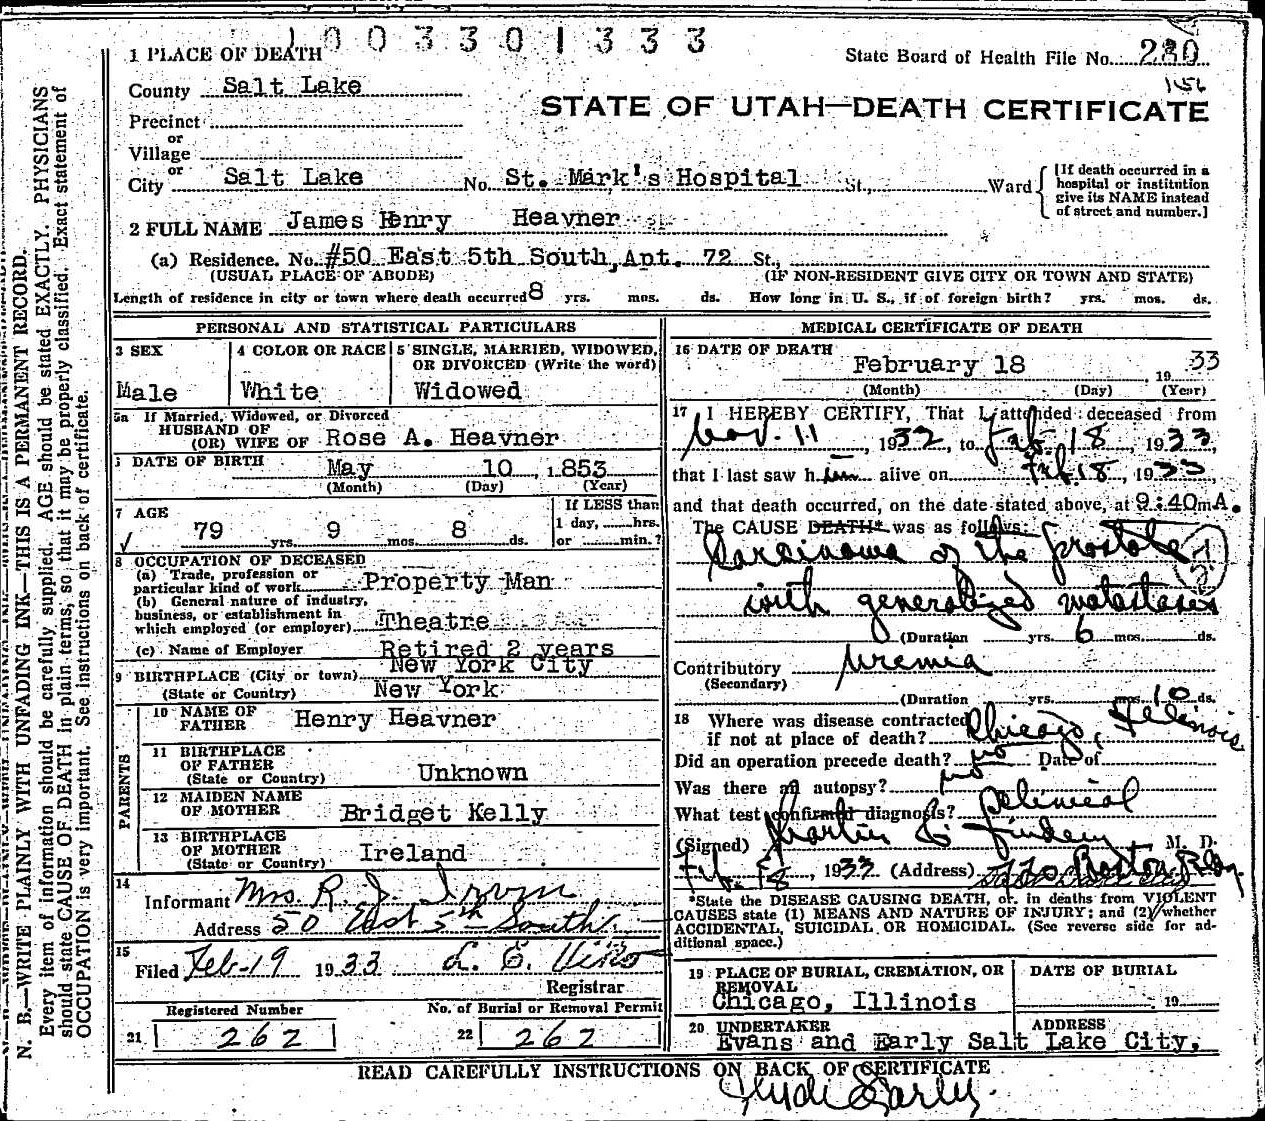 1003301333
1 PLACE OF DEATH
State Board of Health File No. 280
1156
County Salt Lake
STATE OF UTAH—DEATH CERTIFICATE
Precinct
or
Village
or
City Salt Lake No. St. Mark's Hospital St., Ward
[If death occurred in a
hospital or institution
give its NAME instead
of street and number.]
2 FULL NAME James Henry Heavner
(a) Residence. No. #50 East 5th South, Apt. 72 St.,
(USUAL PLACE OF ABODE) (IF NON-RESIDENT GIVE CITY OR TOWN AND STATE)
Length of residence in city or town where death occurred 8 yrs. mos. ds. How long in U. S., if of foreign birth? yrs. mos. ds.
PERSONAL AND STATISTICAL PARTICULARS
3 SEX
Male
4 COLOR OR RACE
White
5 SINGLE, MARRIED, WIDOWED,
OR DIVORCED (Write the word)
Widowed
5a If Married, Widowed, or Divorced
HUSBAND OF
(OR) WIFE OF Rose A. Heavner
DATE OF BIRTH May 10, 1853
(Month) (Day) (Year)
7 AGE
79 yrs. 9 mos. 8 ds.
If LESS than
1 day, hrs.
or min.?
8 OCCUPATION OF DECEASED
(a) Trade, profession or
particular kind of work Property Man
(b) General nature of industry,
business, or establishment in
which employed (or employer) Theatre
(c) Name of Employer Retired 2 years
9 BIRTHPLACE (City or town) New York City
(State or Country) New York
PARENTS
10 NAME OF
FATHER Henry Heavner
11 BIRTHPLACE
OF FATHER
(State or Country) Unknown
12 MAIDEN NAME
OF MOTHER Bridget Kelly
13 BIRTHPLACE
OF MOTHER
(State or Country) Ireland
14
Informant Mrs. R. J. Irvin
Address 50 East 5th South
15
Filed Feb-19 1933 L. E.
Registrar
Registered Number
21 262
No. of Burial or Removal Permit
22 262
MEDICAL CERTIFICATE OF DEATH
16 DATE OF DEATH
February 18, 1933
(Month) (Day) (Year)
17 I HEREBY CERTIFY, That I attended deceased from
Nov. 11, 1932, to Feb. 18, 1933,
that I last saw him alive on Feb 18, 1933,
and that death occurred, on the date stated above, at 9:40mA.
The CAUSE DEATH* was as follows:
Carcinoma of the prostate
with generalized metastases
(Duration yrs. 6 mos. ds.
Contributory Uremia
(Secondary)
(Duration yrs. mos. 10 ds.
18 Where was disease contracted
if not at place of death? Chicago, Illinois
Did an operation precede death? no Date of
Was there an autopsy? no
What test confirmed diagnosis? Clinical
(Signed) Martin C. Lindem M. D.
Feb. 18, 1933 (Address) Boston Bldg.
*State the DISEASE CAUSING DEATH, or, in deaths from VIOLENT
CAUSES state (1) MEANS AND NATURE OF INJURY; and (2) whether
ACCIDENTAL, SUICIDAL OR HOMICIDAL. (See reverse side for ad-
ditional space.)
19 PLACE OF BURIAL, CREMATION, OR
REMOVAL
Chicago, Illinois
DATE OF BURIAL
19
20 UNDERTAKER ADDRESS
Evans and Early Salt Lake City,
READ CAREFULLY INSTRUCTIONS ON BACK OF CERTIFICATE
Clyde Early.
N. B.—WRITE PLAINLY WITH UNFADING INK—THIS IS A PERMANENT RECORD.
Every item of information should be carefully supplied. AGE should be stated EXACTLY. PHYSICIANS
should state CAUSE OF DEATH in plain terms, so that it may be properly classified. Exact statement of
OCCUPATION is very important. See instructions on back of certificate.